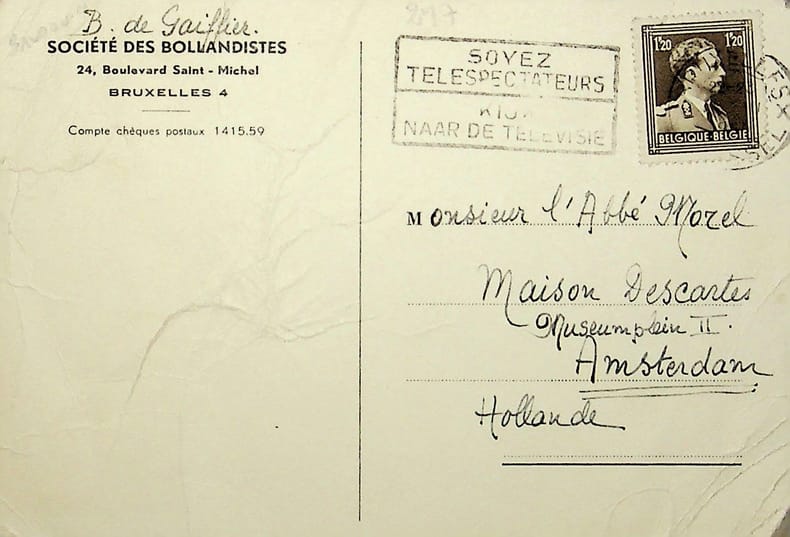 B. de Gaiffier
SOCIÉTÉ DES BOLLANDISTES
24, Boulevard Saint - Michel
BRUXELLES 4
Compte chèques postaux 1415.59
SOYEZ
TELESPECTATEURS
KIJK
NAAR DE TELEVISIE
1F20 1F20
BELGIQUE-BELGIE
Monsieur l'Abbé Morel
Maison Descartes
Museumplein II.
Amsterdam
Hollande